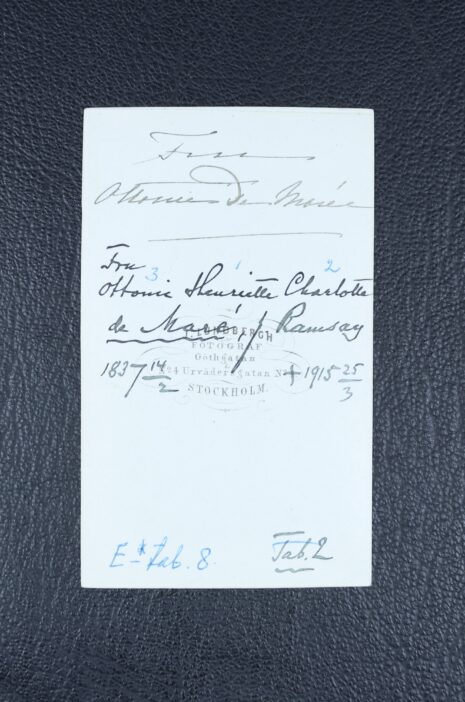 Fru
Ottonie De Marée
Fru
3 1 2
Ottonie Henriette Charlotte
de Maré f/ Ramsay
LUNDBERGH
FOTOGRAF
Göthgatan
1837 14/2 † 1915 25/3
24 Urvädersgatan
STOCKHOLM.
Tab. 8.
Tab. 2